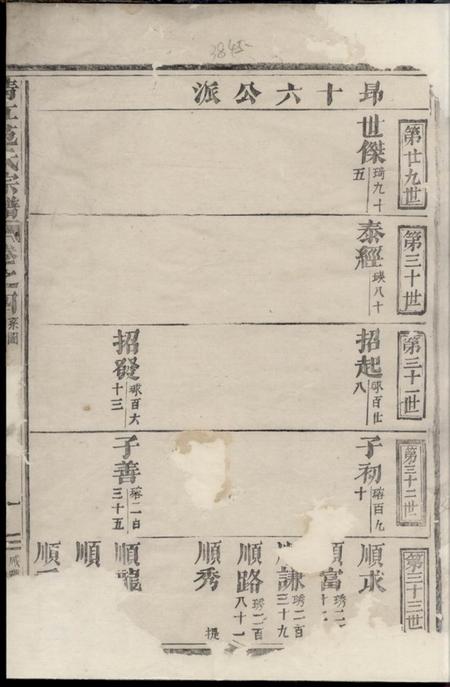 3845
昻十六公派
第廿九世
世傑 琦九十五
第三十世
泰經 瑛八十
第三十一世
招起 球百廿八
招發 球百六十三
第三十二世
子初 瑢百九十
子善 瑢二百三十五
第三十三世
順求
順富 琇二
謙 琇二百三十九
順路 琇二百八十一
順秀
提
順龍
順
順
氏宗譜
系圖